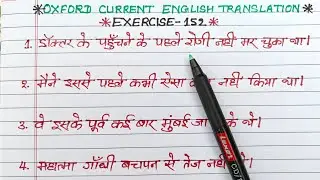 *OXFORD CURRENT ENGLISH TRANSLATION*
*EXERCISE-152.*
1. डॉक्टर के पहुँचने के पहले रोगी नहीं मर चुका था।
2. मैंने इससे पहले कभी ऐसा नहीं किया था।
3. वे इसके पूर्व कई बार मुंबई जा के थे।
4. महात्मा गाँधी बचपन से तेज नहीं